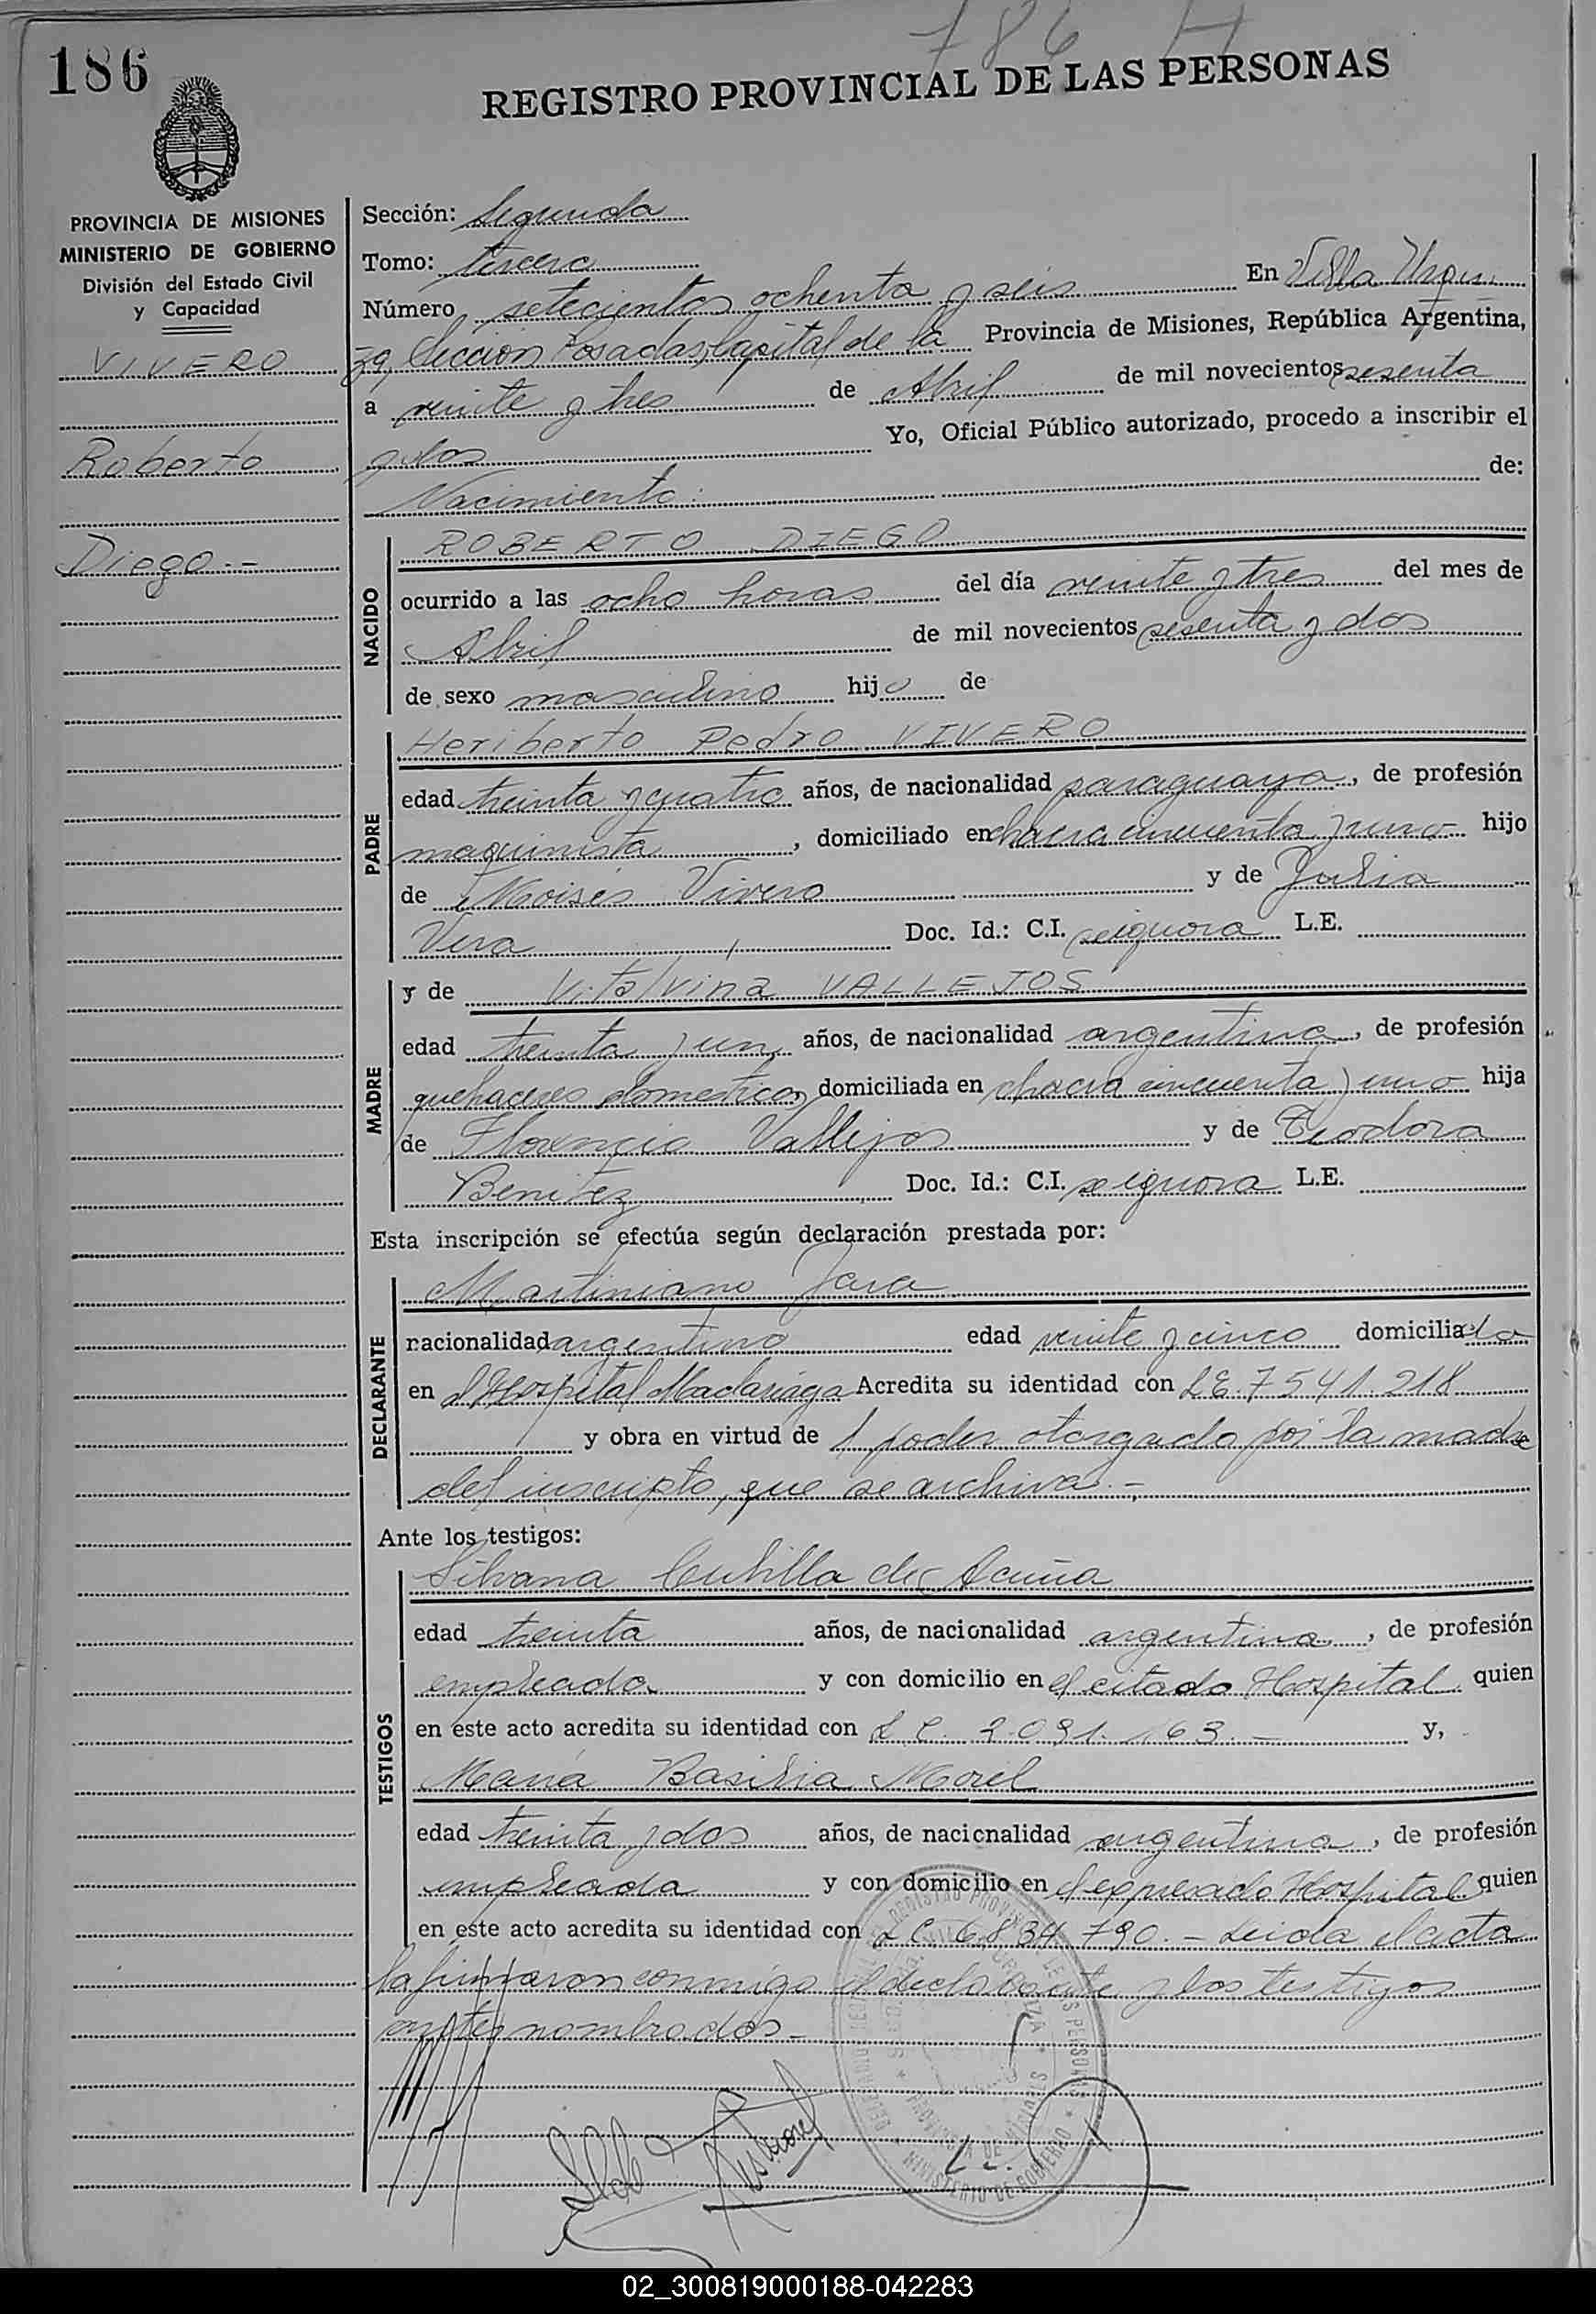 786 H
186
REGISTRO PROVINCIAL DE LAS PERSONAS
PROVINCIA DE MISIONES
MINISTERIO DE GOBIERNO
División del Estado Civil
y Capacidad
VIVERO
Roberto
Diego.-
Sección: Segunda
Tomo: tercero
Número setecientos ochenta y seis En Villa Urqui
za, Sección Posadas, Capital de la Provincia de Misiones, República Argentina,
a veinte y tres de Abril de mil novecientos sesenta
y dos Yo, Oficial Público autorizado, procedo a inscribir el
Nacimiento: de:
NACIDO
ROBERTO DIEGO
ocurrido a las ocho horas del día veinte y tres del mes de
Abril de mil novecientos sesenta y dos
de sexo masculino hijo de
PADRE
Heriberto Pedro VIVERO
edad treinta y cuatro años, de nacionalidad paraguaya, de profesión
maquinista, domiciliado en chacra cincuenta y uno hijo
de Moisés Vivero y de Julia
Vera Doc. Id.: C.I. se ignora L.E.
MADRE
y de Vitalvina VALLEJOS
edad treinta y un años, de nacionalidad argentina, de profesión
quehaceres domesticos, domiciliada en chacra cincuenta y uno hija
de Florencio Vallejos y de Teodora
Benitez Doc. Id.: C.I. se ignora L.E.
Esta inscripción se efectúa según declaración prestada por:
DECLARANTE
Martiniano Jara
nacionalidad argentino edad veinte y cinco domiciliado
en el Hospital Madariaga Acredita su identidad con L.E. 7541.218
y obra en virtud de 1 poder otorgado por la madre
del inscripto, que se archiva.-
Ante los testigos:
TESTIGOS
Silvana de Acuña
edad treinta años, de nacionalidad argentina, de profesión
empleada y con domicilio en el citado Hospital quien
en este acto acredita su identidad con L.C. 2.091.163.- y,
María Basilia Morel
edad treinta y dos años, de nacionalidad argentina, de profesión
empleada y con domicilio en el expresado Hospital quien
en este acto acredita su identidad con L.C. 6.834.790.- Leida el acta
la firmaron conmigo el declarante y los testigos
antes nombrados.-
REGISTRO PROVINCIAL DE LAS PERSONAS
PROVINCIA DE MISIONES
MINISTERIO DE GOBIERNO
02_300819000188-042283